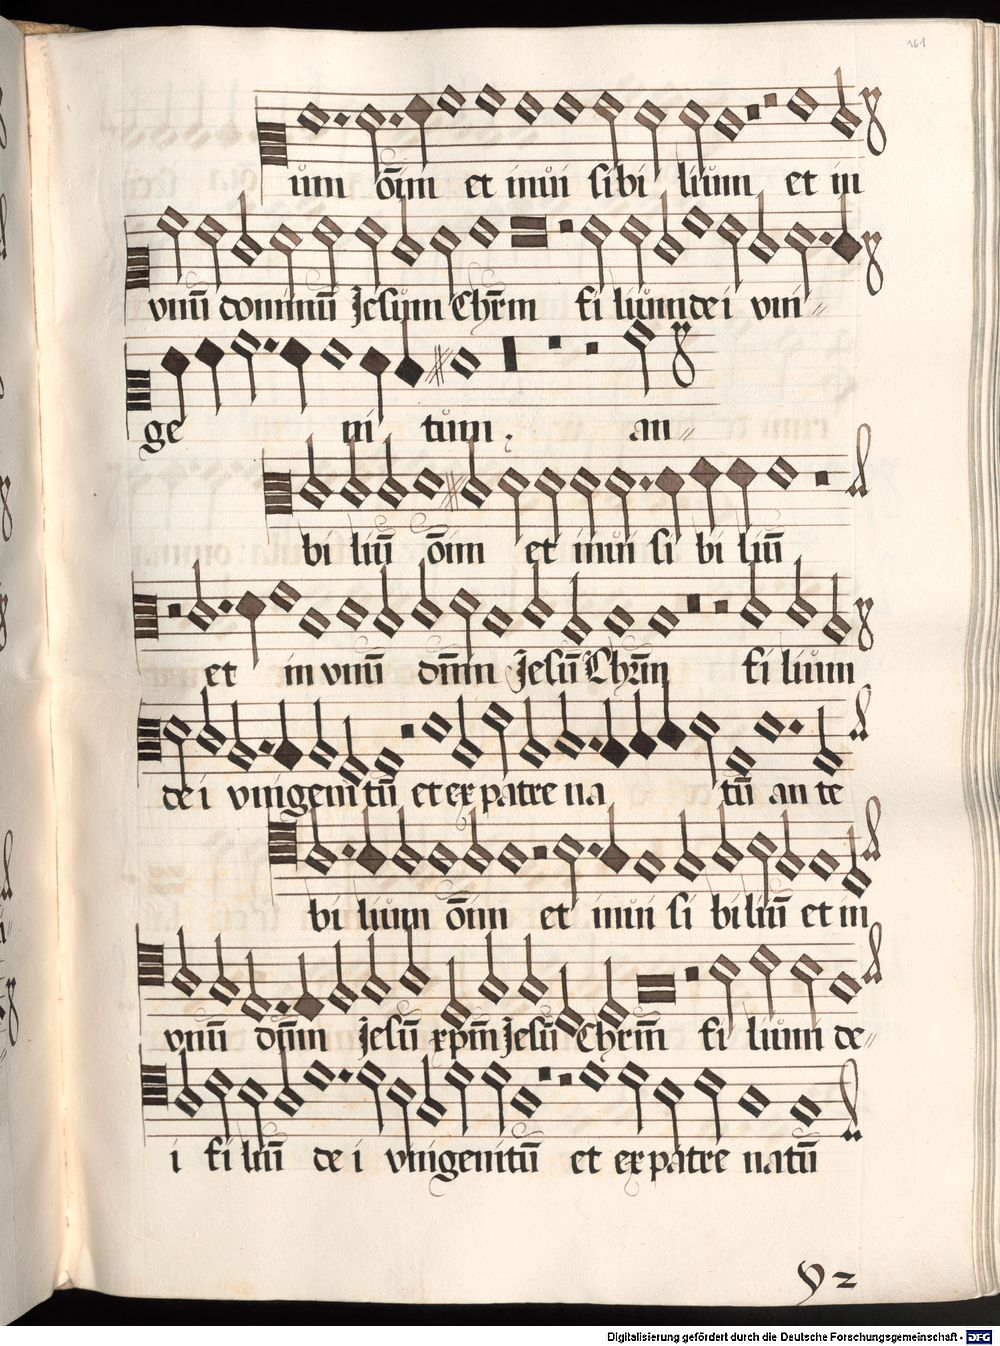 161
um oīm et inui sibi lium et in
vnuū dominuū Jesum Chrm̄ fi lium de i vni〃
ge ni tum. an〃
bi liuū oīm et inui si bi liuū
et in vnuū dn̄m Jesū Chrm̄ fi lium
de i vnigenitū et ex patre na tū an te
bi lium oīm et inui si biliuū et in
vnuū dn̄m Jesū xpm̄ Jesū Chrm̄ fi lium de〃
i fi liuū de i vnigenitū et ex patre natū
y2
Digitalisierung gefördert durch die Deutsche Forschungsgemeinschaft - DFG